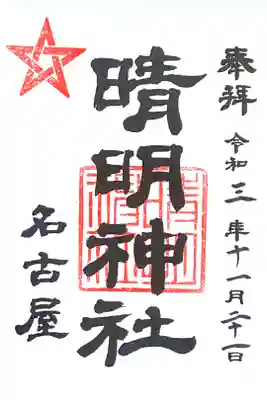 奉拝 令和三年十一月二十一日
晴明神社
名古屋